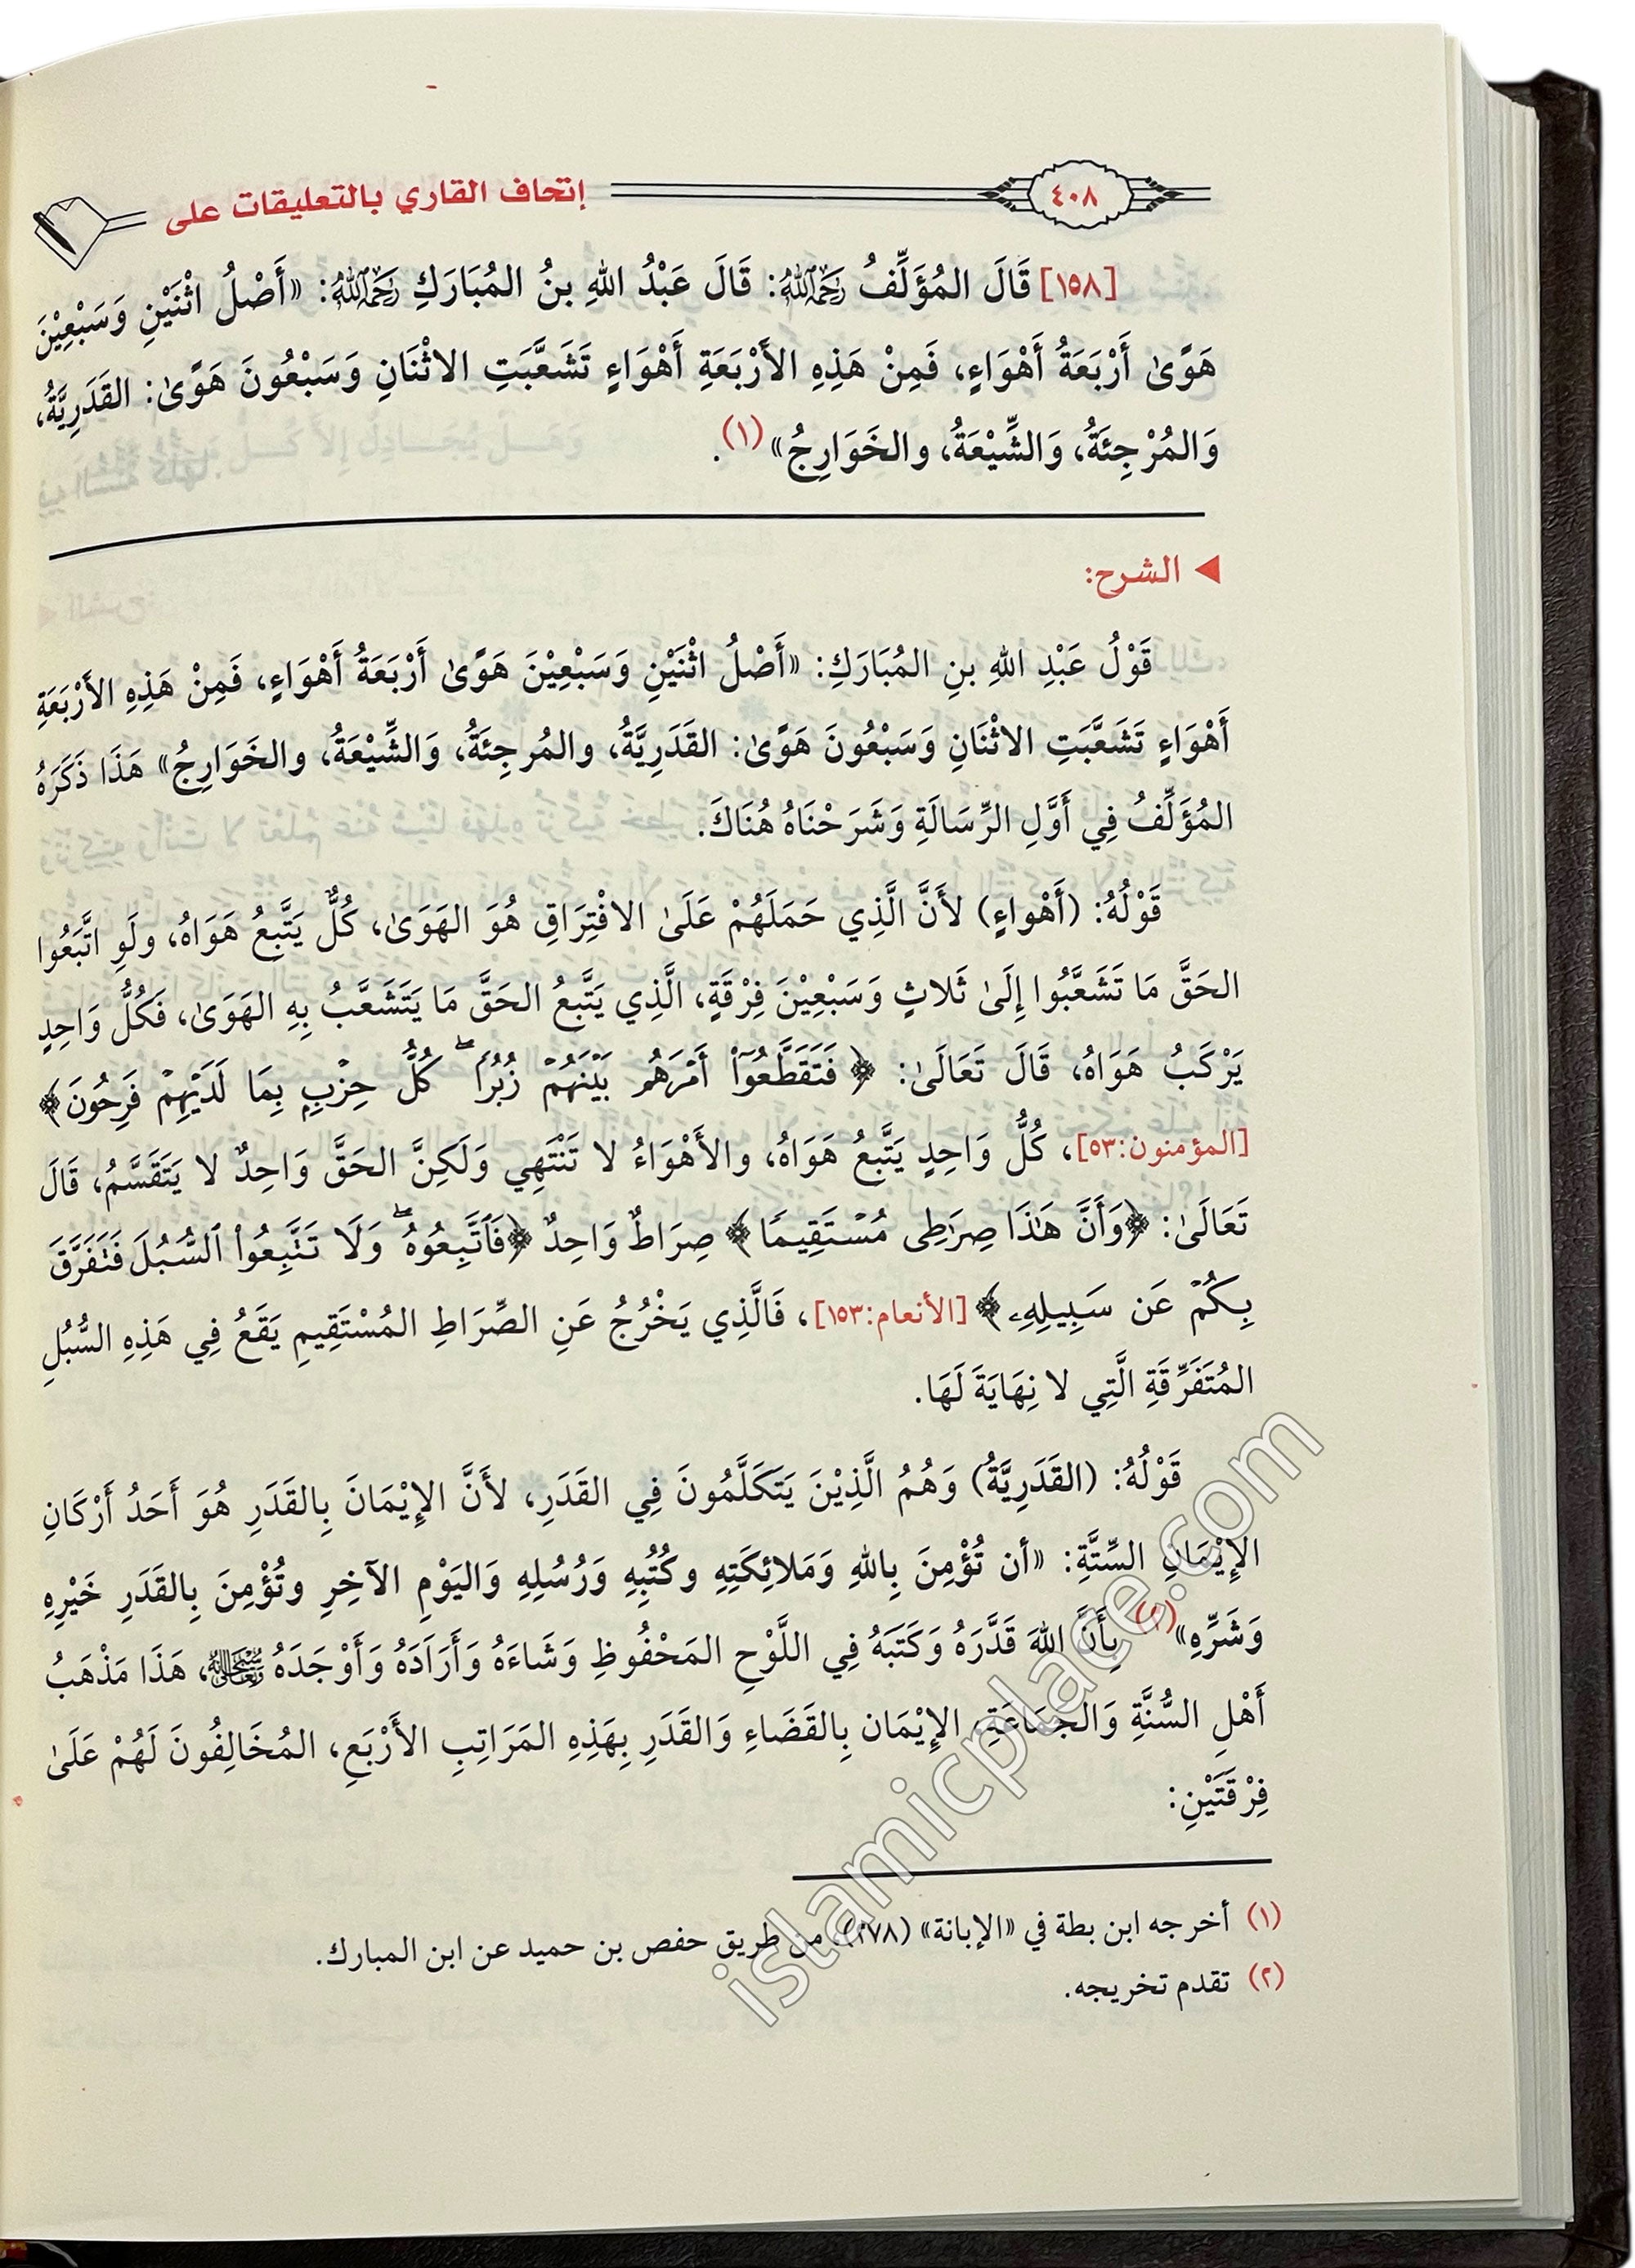 ٤٠٨
إتحاف القاري بالتعليقات على
[١٥٨] قَالَ المُؤَلِّفُ رَحِمَهُ اللهُ: قَالَ عَبْدُ اللهِ بنُ المُبَارَكِ رَحِمَهُ اللهُ: «أَصْلُ اثْنَيْنِ وَسَبْعِيْنَ
هَوًىٰ أَرْبَعَةُ أَهْوَاءٍ، فَمِنْ هَذِهِ الأَرْبَعَةِ أَهْوَاءٍ تَشَعَّبَتِ الاثْنَانِ وَسَبْعُونَ هَوًىٰ: القَدَرِيَّةُ،
وَالمُرْجِئَةُ، وَالشِّيْعَةُ، والخَوَارِجُ»(١).
الشرح:
قَوْلُ عَبْدِ اللهِ بنِ المُبَارَكِ: «أَصْلُ اثْنَيْنِ وَسَبْعِيْنَ هَوًىٰ أَرْبَعَةُ أَهْوَاءٍ، فَمِنْ هَذِهِ الأَرْبَعَةِ
أَهْوَاءٍ تَشَعَّبَتِ الاثْنَانِ وَسَبْعُونَ هَوًىٰ: القَدَرِيَّةُ، والمُرجِئَةُ، وَالشِّيْعَةُ، والخَوَارِجُ» هَذَا ذَكَرَهُ
المُؤَلِّفُ فِي أَوَّلِ الرِّسَالَةِ وَشَرَحْنَاهُ هُنَاكَ.
قَوْلُهُ: (أَهْواءٍ) لأَنَّ الَّذِي حَمَلَهُمْ عَلَىٰ الافْتِرَاقِ هُوَ الهَوَىٰ، كُلٌّ يَتَّبِعُ هَوَاهُ، ولَوِ اتَّبَعُوا
الحَقَّ مَا تَشَعَّبُوا إِلَىٰ ثَلاثٍ وَسَبْعِيْنَ فِرْقَةٍ، الَّذِي يَتَّبِعُ الحَقَّ مَا يَتَشَعَّبُ بِهِ الهَوَىٰ، فَكُلُّ وَاحِدٍ
يَرْكَبُ هَوَاهُ، قَالَ تَعَالَىٰ: ﴿فَتَقَطَّعُوٓاْ أَمۡرَهُم بَيۡنَهُمۡ زُبُرٗاۖ كُلُّ حِزۡبِۭ بِمَا لَدَيۡهِمۡ فَرِحُونَ﴾
[المؤمنون:٥٣]، كُلُّ وَاحِدٍ يَتَّبِعُ هَوَاهُ، والأَهْوَاءُ لا تَنْتَهِي وَلَكِنَّ الحَقَّ وَاحِدٌ لا يَتَقَسَّمُ، قَالَ
تَعَالَىٰ: ﴿وَأَنَّ هَٰذَا صِرَٰطِى مُسۡتَقِيمٗا﴾ صِرَاطٌ وَاحِدٌ ﴿فَٱتَّبِعُوهُۖ وَلَا تَتَّبِعُواْ ٱلسُّبُلَ فَتَفَرَّقَ
بِكُمۡ عَن سَبِيلِهِۦ﴾ [الأنعام:١٥٣]، فَالَّذِي يَخْرُجُ عَنِ الصِّرَاطِ المُسْتَقِيمِ يَقَعُ فِي هَذِهِ السُّبُلِ
المُتَفَرِّقَةِ الَّتِي لا نِهَايَةَ لَهَا.
قَوْلُهُ: (القَدَرِيَّةُ) وَهُمُ الَّذِيْنَ يَتَكَلَّمُونَ فِي القَدَرِ، لأَنَّ الإِيْمَانَ بِالقَدَرِ هُوَ أَحَدُ أَرْكَانِ
الإِيْمَانِ السِّتَّةِ: «أن تُؤْمِنَ بِاللهِ وَمَلائِكَتِهِ وكُتُبِهِ وَرُسُلِهِ وَاليَوْمِ الآخِرِ وتُؤْمِنَ بِالقَدَرِ خَيْرِهِ
وَشَرِّهِ»(٢) بِأَنَّ اللهَ قَدَّرَهُ وَكَتَبَهُ فِي اللَّوْحِ المَحْفُوظِ وَشَاءَهُ وَأَرَادَهُ وَأَوْجَدَهُ سُبْحَانَهُ وَتَعَالَى، هَذَا مَذْهَبُ
أَهْلِ السُّنَّةِ وَالجَمَاعَةِ، الإِيْمَان بِالقَضَاءِ وَالقَدَرِ بِهَذِهِ المَرَاتِبِ الأَرْبَعِ، المُخَالِفُونَ لَهُمْ عَلَىٰ
فِرْقَتَيْنِ:
(١) أخرجه ابن بطة في «الإبانة» (٢٧٨) من طريق حفص بن حميد عن ابن المبارك.
(٢) تقدم تخريجه.
islamicplace.com